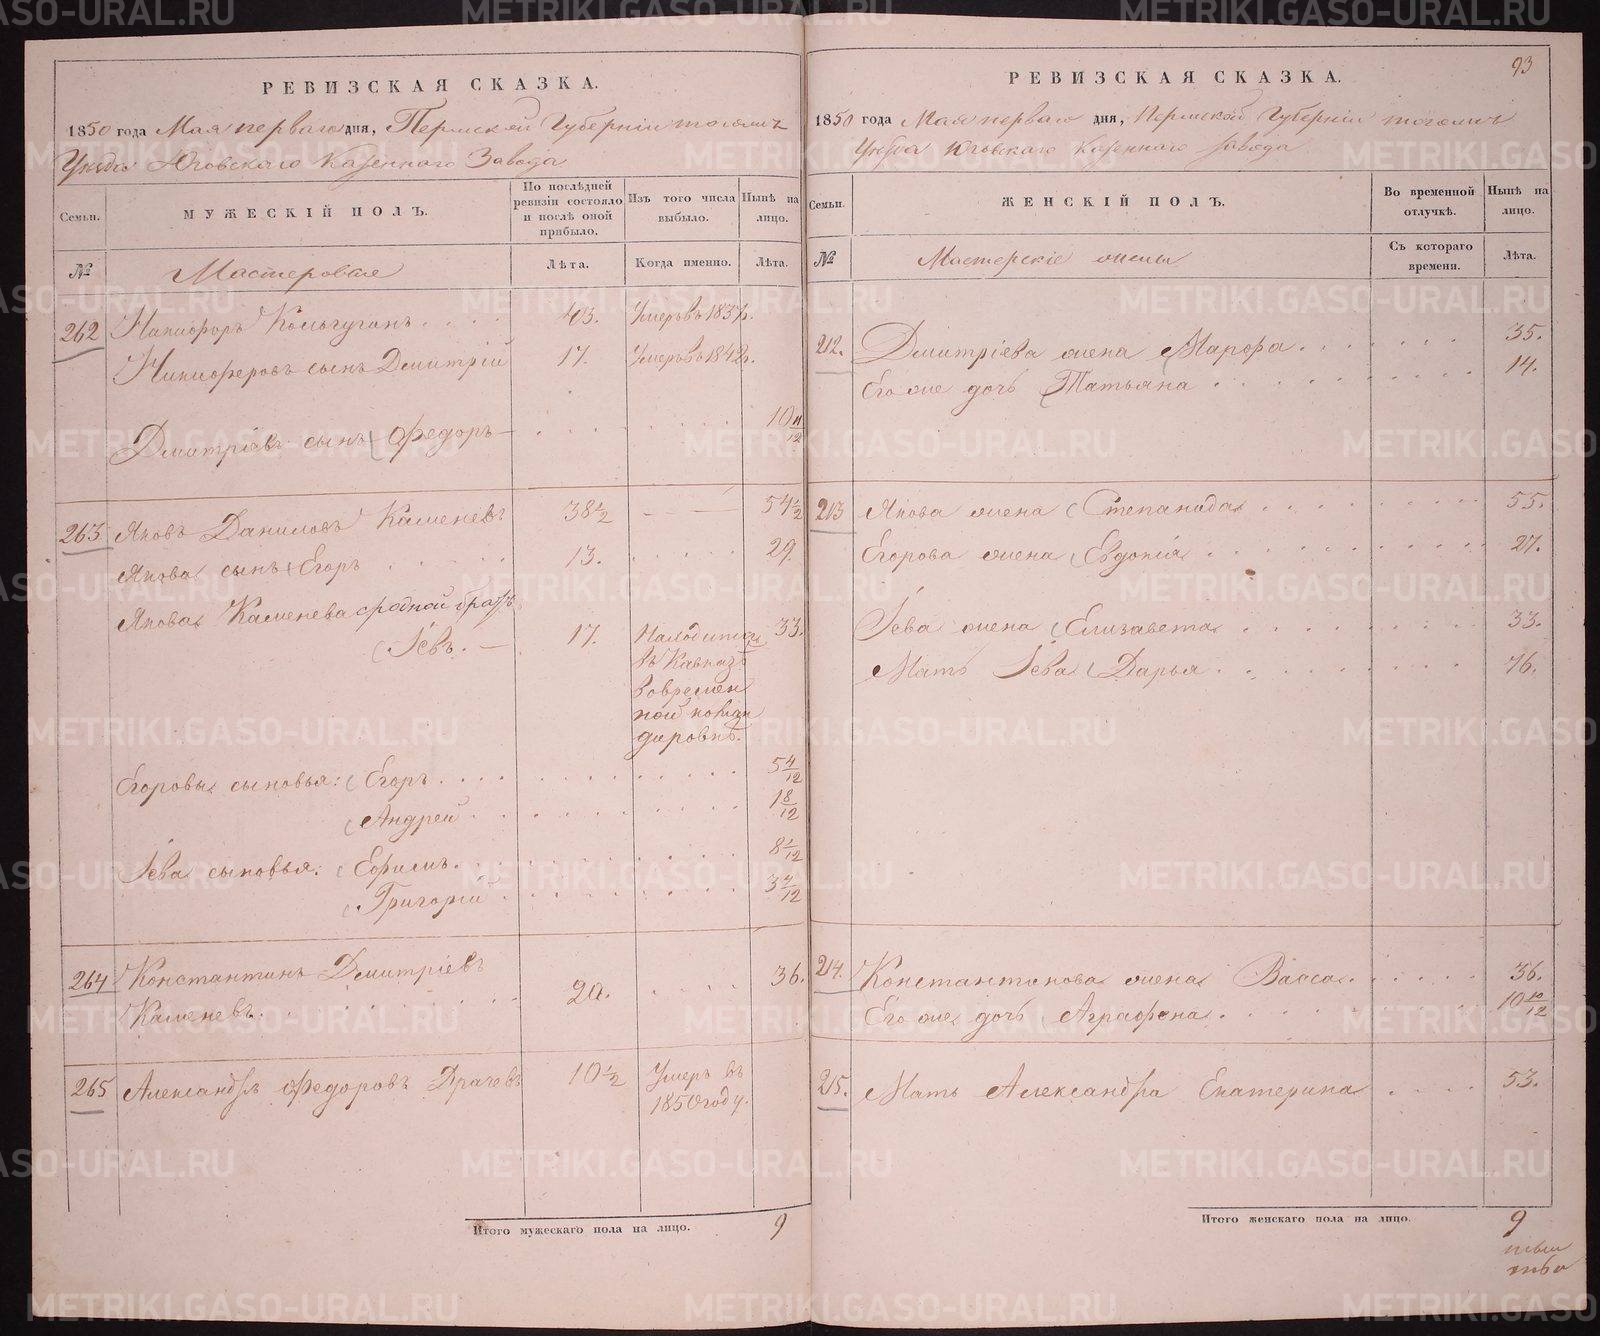 РЕВИЗСКАЯ СКАЗКА.
1850 года Мая перваго дня, Пермской Губерніи тогожъ
Уѣзда Юговскаго Казеннаго Завода
Семьи.
МУЖЕСКІЙ ПОЛЪ.
По послѣдней ревизіи состояло и послѣ оной прибыло.
Изъ того числа выбыло.
Нынѣ на лицо.
№
Мастеровая
Лѣта.
Когда именно.
Лѣта.
262 Никифоръ 43. Умеръ въ 1837г.
Никифоровъ сынъ Дмитрій 17. Умеръ въ 1842г.
Дмитріевъ сынъ Федоръ 10 11/12
263 Яковъ Даниловъ Каменевъ 38 1/2 54 1/2
Якова сынъ Егоръ 13. 29.
Якова Каменева сродной братъ
Іевъ. 17. Находится 33.
въ Кавказѣ
во времен
ной коман
дировкѣ.
Егоровы сыновья: Егоръ 5 4/12
Андрей 1 8/12
Іева сыновья: Ефимъ. 8 1/12
Григорій 3 4/12
264 Константинъ Дмитріевъ 36.
Каменевъ. 20.
265 Александръ Федоровъ Драчевъ 10 1/2 Умеръ въ
1850 году.
Итого мужескаго пола на лицо. 9
93
РЕВИЗСКАЯ СКАЗКА.
1850 года Мая перваго дня, Пермской Губерніи тогожъ
Уѣзда Юговскаго Казеннаго Завода
Семьи.
ЖЕНСКІЙ ПОЛЪ.
Во временной отлучкѣ.
Нынѣ на лицо.
№
Мастерскіе жены
Съ котораго времени.
Лѣта.
212. Дмитріева жена Марфа 35.
Его же дочь Татьяна 14.
213 Якова жена Степанида 55.
Егорова жена Евдокія 27.
Іева жена Елизавета 33.
Мать Іева Дарья 76.
214. Константинова жена Васса 36.
Его же дочь Аграфена 10 10/12
215. Мать Александра Екатерина 53.
Итого женскаго пола на лицо. 9
METRIKI.GASO-URAL.RU